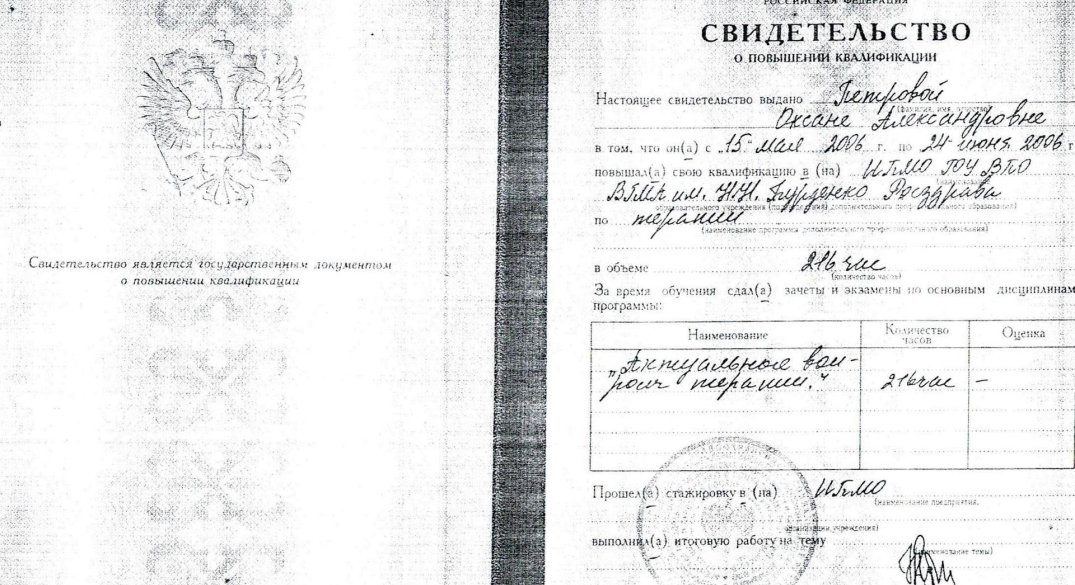 Свидетельство является государственным документом
о повышении квалификации
РОССИЙСКАЯ ФЕДЕРАЦИЯ
СВИДЕТЕЛЬСТВО
О ПОВЫШЕНИИ КВАЛИФИКАЦИИ
Настоящее свидетельство выдано Петровой
(фамилия, имя, отчество)
Оксане Александровне
в том, что он(а) с „15“ мая 2006 г. по „24“ июня 2006 г
повышал(а) свою квалификацию в (на) ИПМО ГОУ ВПО
ВГМА им. Н.Н. Бурденко Росздрава
образовательного учреждения (подразделения) дополнительного профессионального образования)
по терапии
(наименование программы дополнительного профессионального образования)
в объеме 216 час
(количество часов)
За время обучения сдал(а) зачеты и экзамены по основным дисциплинам
программы:
Наименование Количество часов Оценка
„Актуальные воп-
росы терапии.“ 216 час –
Прошел(а) стажировку в (на) ИПМО
(наименование предприятия,
организации, учреждения)
выполнил(а) итоговую работу на тему
(наименование темы)